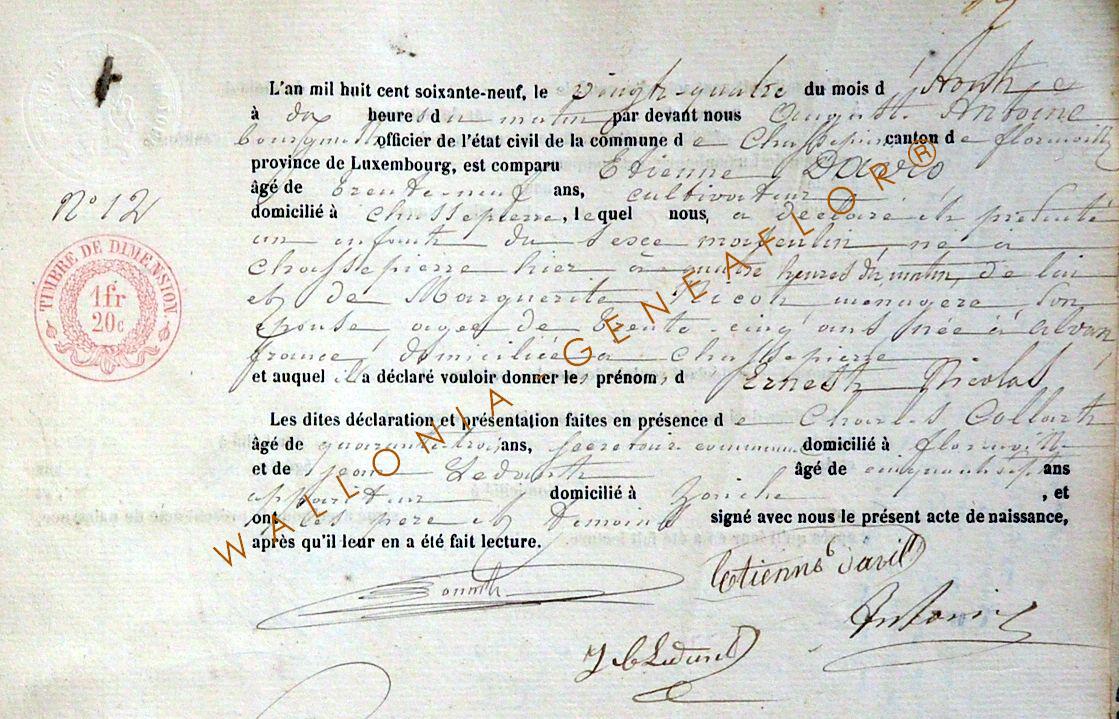 L'an mil huit cent soixante-neuf, le vingt-quatre du mois d'Aout
à dix heures du matin par devant nous August Antoine
bourgmestre officier de l'état civil de la commune de Chassepierre canton de florenville
province de Luxembourg, est comparu Etienne David
âgé de trente-neuf ans, cultivateur
N° 12
domicilié à Chassepierre, lequel nous, a déclaré et présenté
un enfant du sexe masculin, né à
Chassepierre hier à quatre heures du matin, de lui
et de Marguerite Nicot ménagère son
épouse agée de trente-cinq ans née à
france, domiciliée à Chassepierre
et auquel il a déclaré vouloir donner les prénoms d Ernest Nicolas
Les dites déclaration et présentation faites en présence de Charles Collart
âgé de quarante trois ans, secrétaire communal domicilié à florenville
et de jean Ledant âgé de cinquante sept ans
appariteur domicilié à , et
ont les père et témoins signé avec nous le présent acte de naissance,
après qu'il leur en a été fait lecture.
TIMBRE DE DIMENSION
1 fr
20 c
Etienne david
Antoine
WALLONIA - GENEAFLOR®